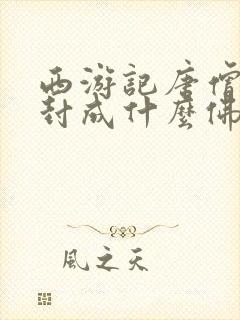 西游記唐僧
封成什麼佛
風之天